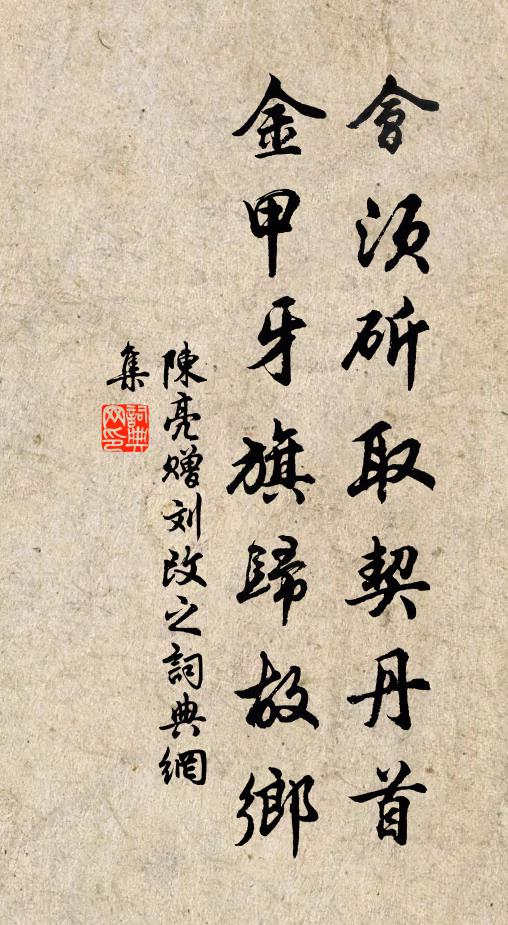 會須斫取契丹首
金甲牙旗歸故鄉
陳亮贈刘改之詞典網
集
詞典
网印